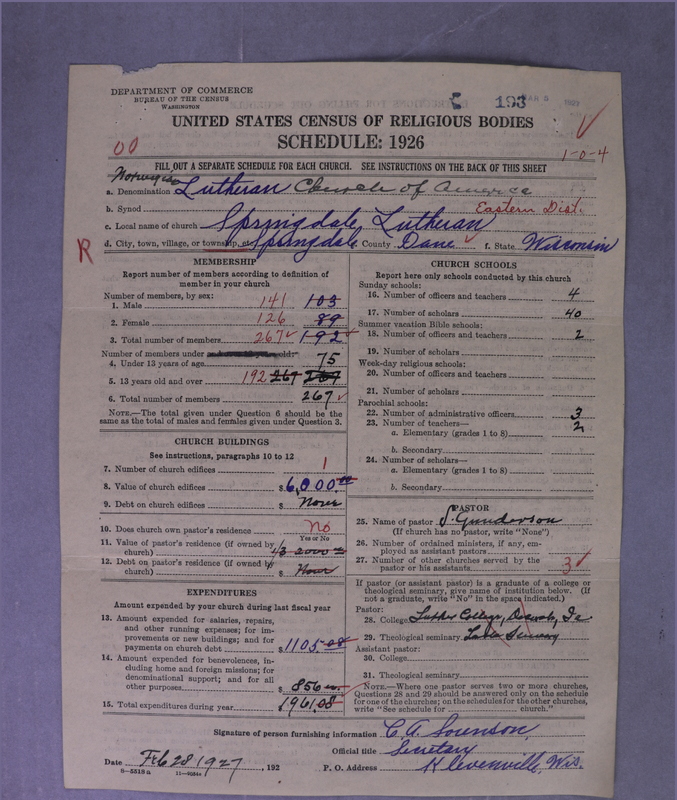 DEPARTMENT OF COMMERCE
BUREAU OF THE CENSUS
WASHINGTON
193
UNITED STATES CENSUS OF RELIGIOUS BODIES
SCHEDULE: 1926
00
1-0-4
FILL OUT A SEPARATE SCHEDULE FOR EACH CHURCH. SEE INSTRUCTIONS ON THE BACK OF THIS SHEET
a. Denomination Norwegian Lutheran Church of America
b. Synod Eastern Dist.
c. Local name of church Springdale Lutheran
d. City, town, village, or township, Springdale County Dane f. State Wisconsin
R
MEMBERSHIP
Report number of members according to definition of
member in your church
Number of members, by sex:
1. Male 141 103
2. Female 126 89
3. Total number of members 267 192
Number of members under
4. Under 13 years of age 75
5. 13 years old and over 192 267
6. Total number of members 267
NOTE.—The total given under Question 6 should be the
same as the total of males and females given under Question 3.
CHURCH BUILDINGS
See instructions, paragraphs 10 to 12
7. Number of church edifices 1
8. Value of church edifices $6,000.00
9. Debt on church edifices $ None
10. Does church own pastor's residence No
Yes or No
11. Value of pastor's residence (if owned by
church) 1/3 2000
12. Debt on pastor's residence (if owned by
church) $ None
EXPENDITURES
Amount expended by your church during last fiscal year
13. Amount expended for salaries, repairs,
and other running expenses; for im-
provements or new buildings; and for
payments on church debt $1105.08
14. Amount expended for benevolences, in-
cluding home and foreign missions; for
denominational support; and for all
other purposes $ 856
15. Total expenditures during year $1961.08
CHURCH SCHOOLS
Report here only schools conducted by this church
Sunday schools:
16. Number of officers and teachers 4
17. Number of scholars 40
Summer vacation Bible schools:
18. Number of officers and teachers 2
19. Number of scholars
Week-day religious schools:
20. Number of officers and teachers
21. Number of scholars
Parochial schools:
22. Number of administrative officers 3
23. Number of teachers— 2
a. Elementary (grades 1 to 8)
b. Secondary
24. Number of scholars—
a. Elementary (grades 1 to 8)
b. Secondary
PASTOR
25. Name of pastor S. Gunderson
(If church has no pastor, write "None")
26. Number of ordained ministers, if any, em-
ployed as assistant pastors
27. Number of other churches served by the
pastor or his assistants 3
If pastor (or assistant pastor) is a graduate of a college or
theological seminary, give name of institution below. (If
not a graduate, write "No" in the space indicated.)
Pastor:
28. College Luther College, Decorah, Ia
29. Theological seminary
Assistant pastor:
30. College
31. Theological seminary
NOTE.—Where one pastor serves two or more churches,
Questions 28 and 29 should be answered only on the schedule
for one of the churches; on the schedules for the other churches,
write "See schedule for church."
Signature of person furnishing information C. A. Sorenson,
Official title Secretary
Date Feb 28 1927, 192 P. O. Address Klevenville, Wis.
8-5518 a 11-4034